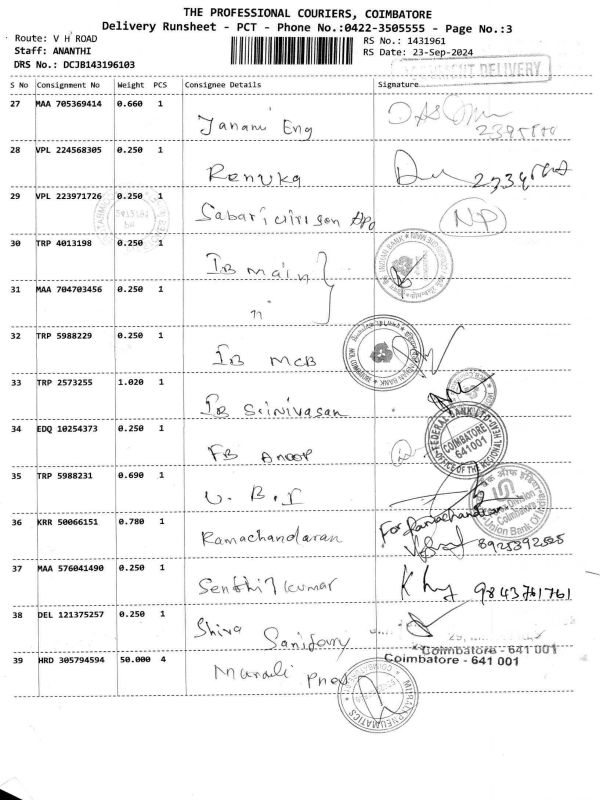 THE PROFESSIONAL COURIERS, COIMBATORE
Delivery Runsheet - PCT - Phone No.:0422-3505555 - Page No.:3
Route: V H ROAD
RS No.: 1431961
Staff: ANANTHI
RS Date: 23-Sep-2024
DRS No.: DCJB143196103
DELIVERY
S No Consignment No Weight PCS Consignee Details Signature
27 MAA 705369414 0.660 1 Janani Eng
28 VPL 224568305 0.250 1 Renuka
29 VPL 223971726 0.250 1 NP
30 TRP 4013198 0.250 1 IB Main
31 MAA 704703456 0.250 1 "
32 TRP 5988229 0.250 1 IB MCB
33 TRP 2573255 1.020 1 IB Srinivasan
34 EDQ 10254373 0.250 1 FB Anoop
FEDERAL BANK LTD
COIMBATORE
641001
35 TRP 5988231 0.690 1 U.B.I
Union Bank Of India
Coimbatore
36 KRR 50066151 0.780 1 Ramachandaran For Ramachandran
8925392585
37 MAA 576041490 0.250 1 Senthil kumar 9843761761
38 DEL 121375257 0.250 1 Shiva Sanitary
Coimbatore - 641 001
39 HRD 305794594 50.000 4 Murali Coimbatore - 641 001
PNEUMATICS